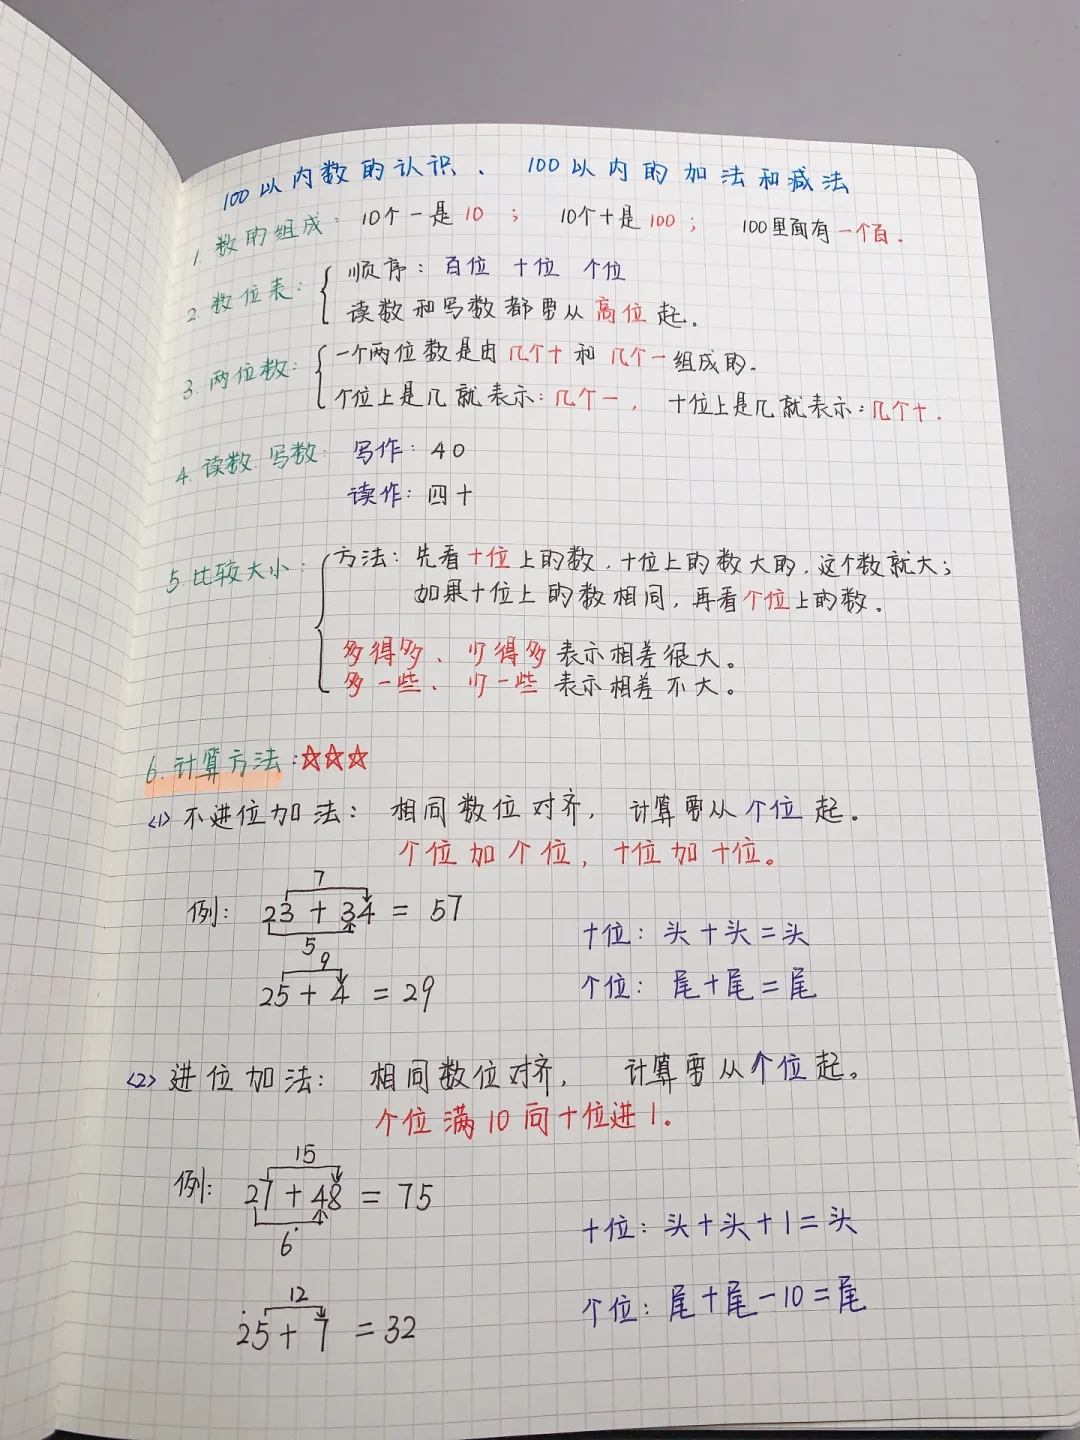 100以内数的认识、 100以内的加法和减法
1. 数的组成: 10个一是10; 10个十是100; 100里面有一个百.
2. 数位表: 顺序: 百位 十位 个位
读数和写数都要从高位起.
3. 两位数: 一个两位数是由几个十和几个一组成的.
个位上是几就表示: 几个一, 十位上是几就表示: 几个十.
4. 读数.写数: 写作: 40
读作: 四十
5. 比较大小: 方法: 先看十位上的数,十位上的数大的,这个数就大;
如果十位上的数相同,再看个位上的数.
多得多、少得多表示相差很大。
多一些、少一些表示相差不大。
6. 计算方法: ☆☆☆
<1> 不进位加法: 相同数位对齐, 计算要从个位起。
个位加个位, 十位加十位。
7
例: 23 + 34 = 57
5
十位: 头+头=头
9
25 + 4 = 29
个位: 尾+尾=尾
<2> 进位加法: 相同数位对齐, 计算要从个位起。
个位满10向十位进1.
15
例: 27 + 48 = 75
6
十位: 头+头+1=头
12
25 + 7 = 32
个位: 尾+尾-10=尾